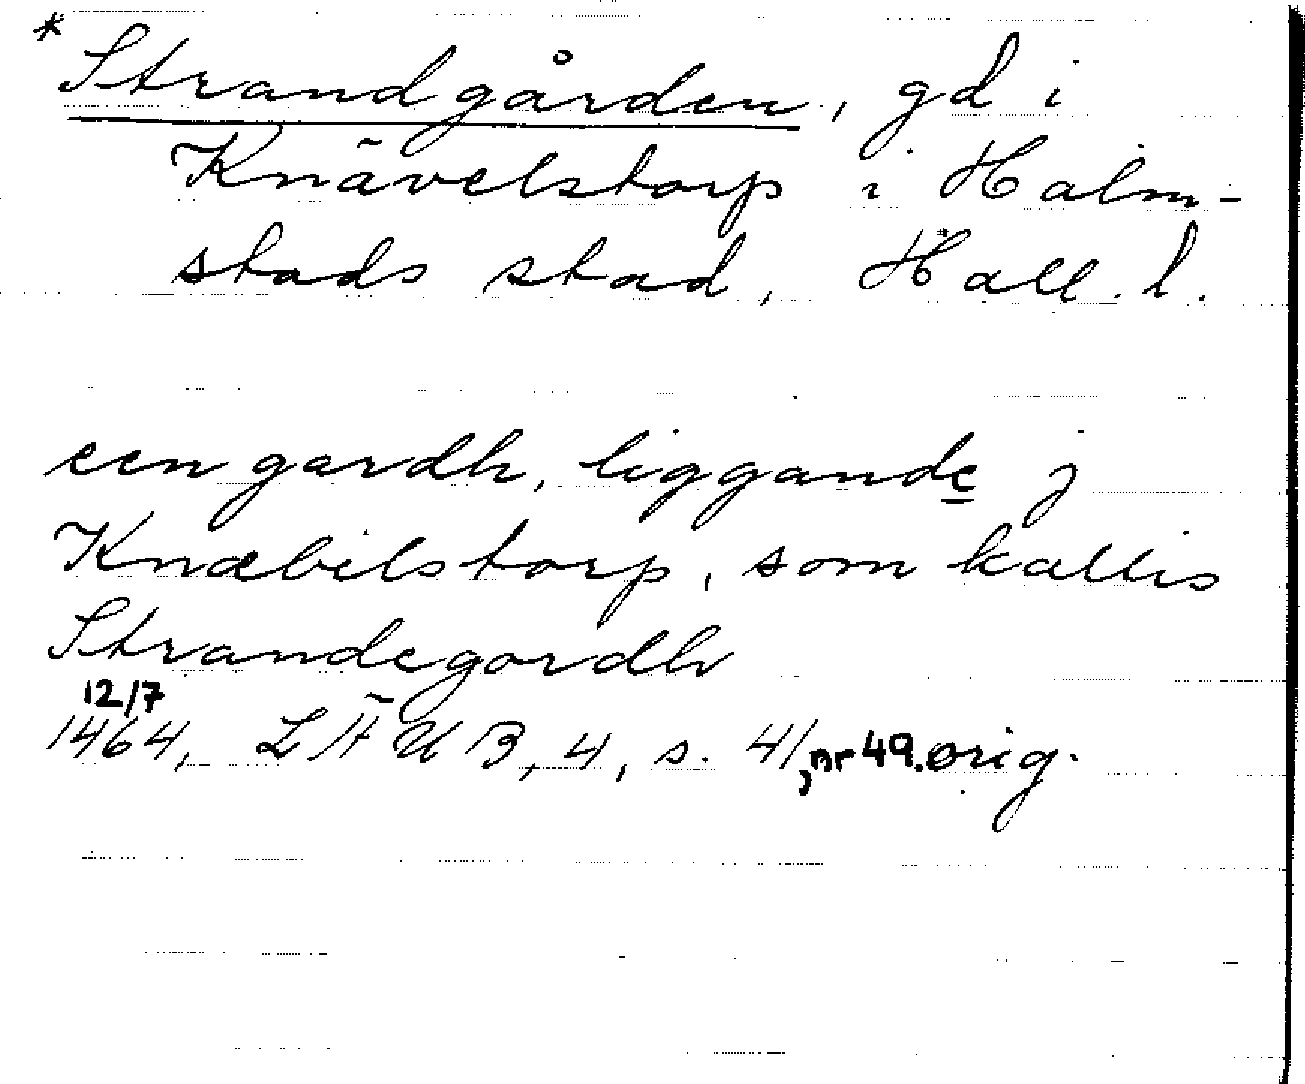 * Strandgården, gd i
Knävelstorp i Halm-
stads stad, Hall. l.
een gardh, liggande j
Knæbilstorp, som kallis
Strandegordh
12/7
1464, LÄUB, 4, s. 41, nr 49. orig.